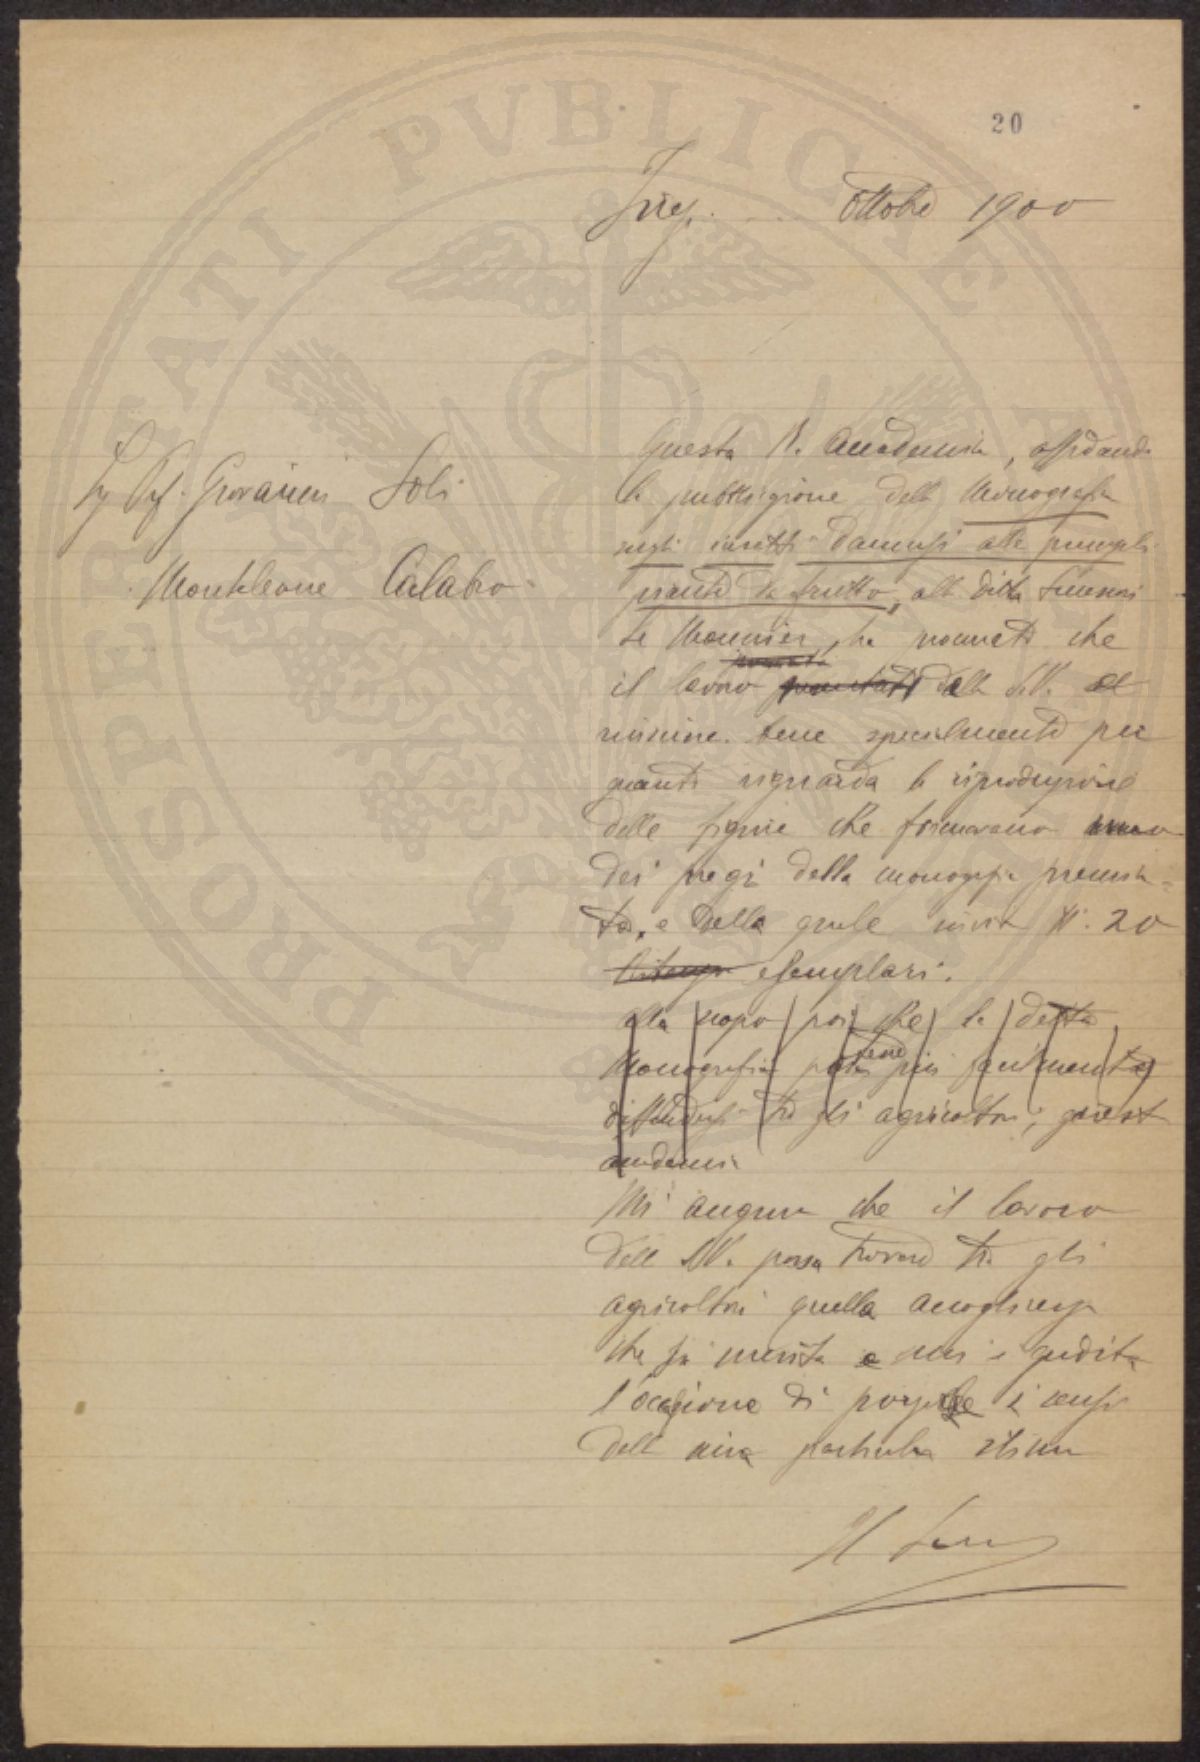 20
ottobre 1900
Prof. Giovanni Soli
Monteleone Calabro
Questa R. Accademia, affidando
la pubblicazione della Monografia
sugli insetti dannosi alle principali
piante da frutto, alla ditta Successori
Le Monnier, ha procurato che
premiato
il lavoro presentato dalla S.V.
bene specialmente per
quanto riguarda la riproduzione
delle figure che formavano uno
dei pregi della monografia premia-
ta, e della quale invia N. 20
esemplari.
Allo scopo poi che la detta
Monografia possa più facilmente
diffondersi tra gli agricoltori, questa
accademia
Mi auguro che il lavoro
della S.V. possa trovare tra gli
agricoltori quella accoglienza
che si merita e mi è gradita
l'occasione di porgerle i sensi
della mia particolare stima
Il
PROSPERITATI PVBLICAE